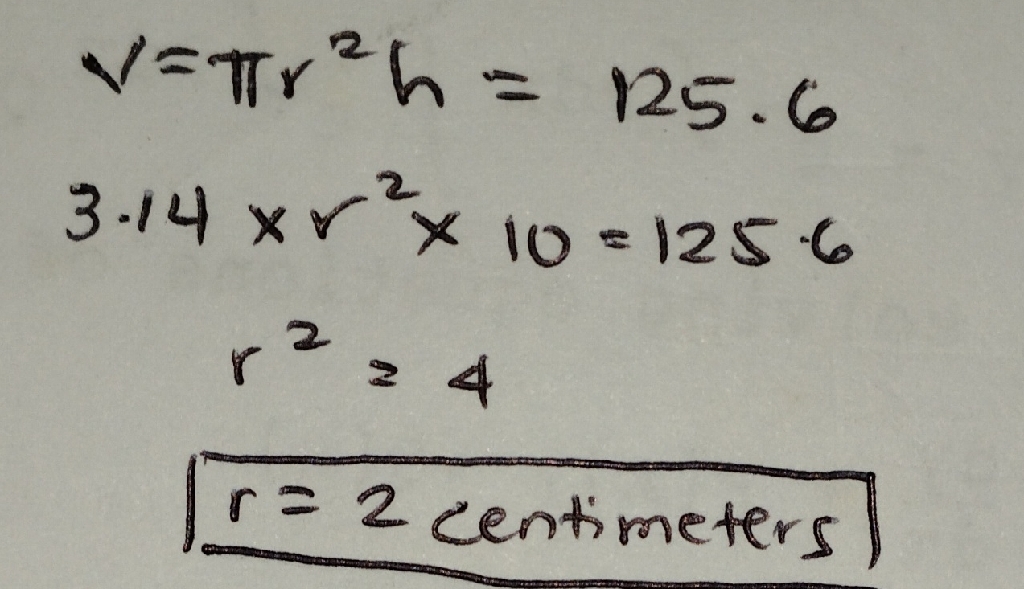 V=πr²h = 125.6
3.14 x r² x 10 = 125.6
r² = 4
r = 2 centimeters